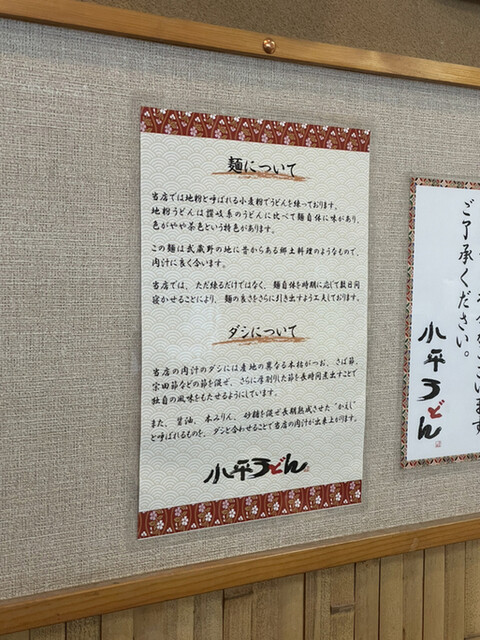 麺について
当店では地粉と呼ばれる小麦粉でうどんを練っております。
地粉うどんは讃岐系のうどんに比べて麺自体に味があり、
色がやや茶色という特色があります。
この麺は武蔵野の地に昔からある郷土料理のようなもので、
肉汁に良く合います。
当店では、ただ練るだけではなく、麺自体を時期に応じて数日間
寝かせることにより、麺の良さをさらに引き出すよう工夫しております。
ダシについて
当店の肉汁のダシには産地の異なる本枯がつお、さば節、
宗田節などの節を混ぜ、さらに厚削りした節を長時間煮出すことで
独自の風味をもたせるようにしています。
また、醤油、本みりん、砂糖を混ぜ長期熟成させた"かえし"
と呼ばれるものを、ダシと合わせることで当店の肉汁が出来上がります。
小平うどん
ございます
ご了承ください。
小平うどん